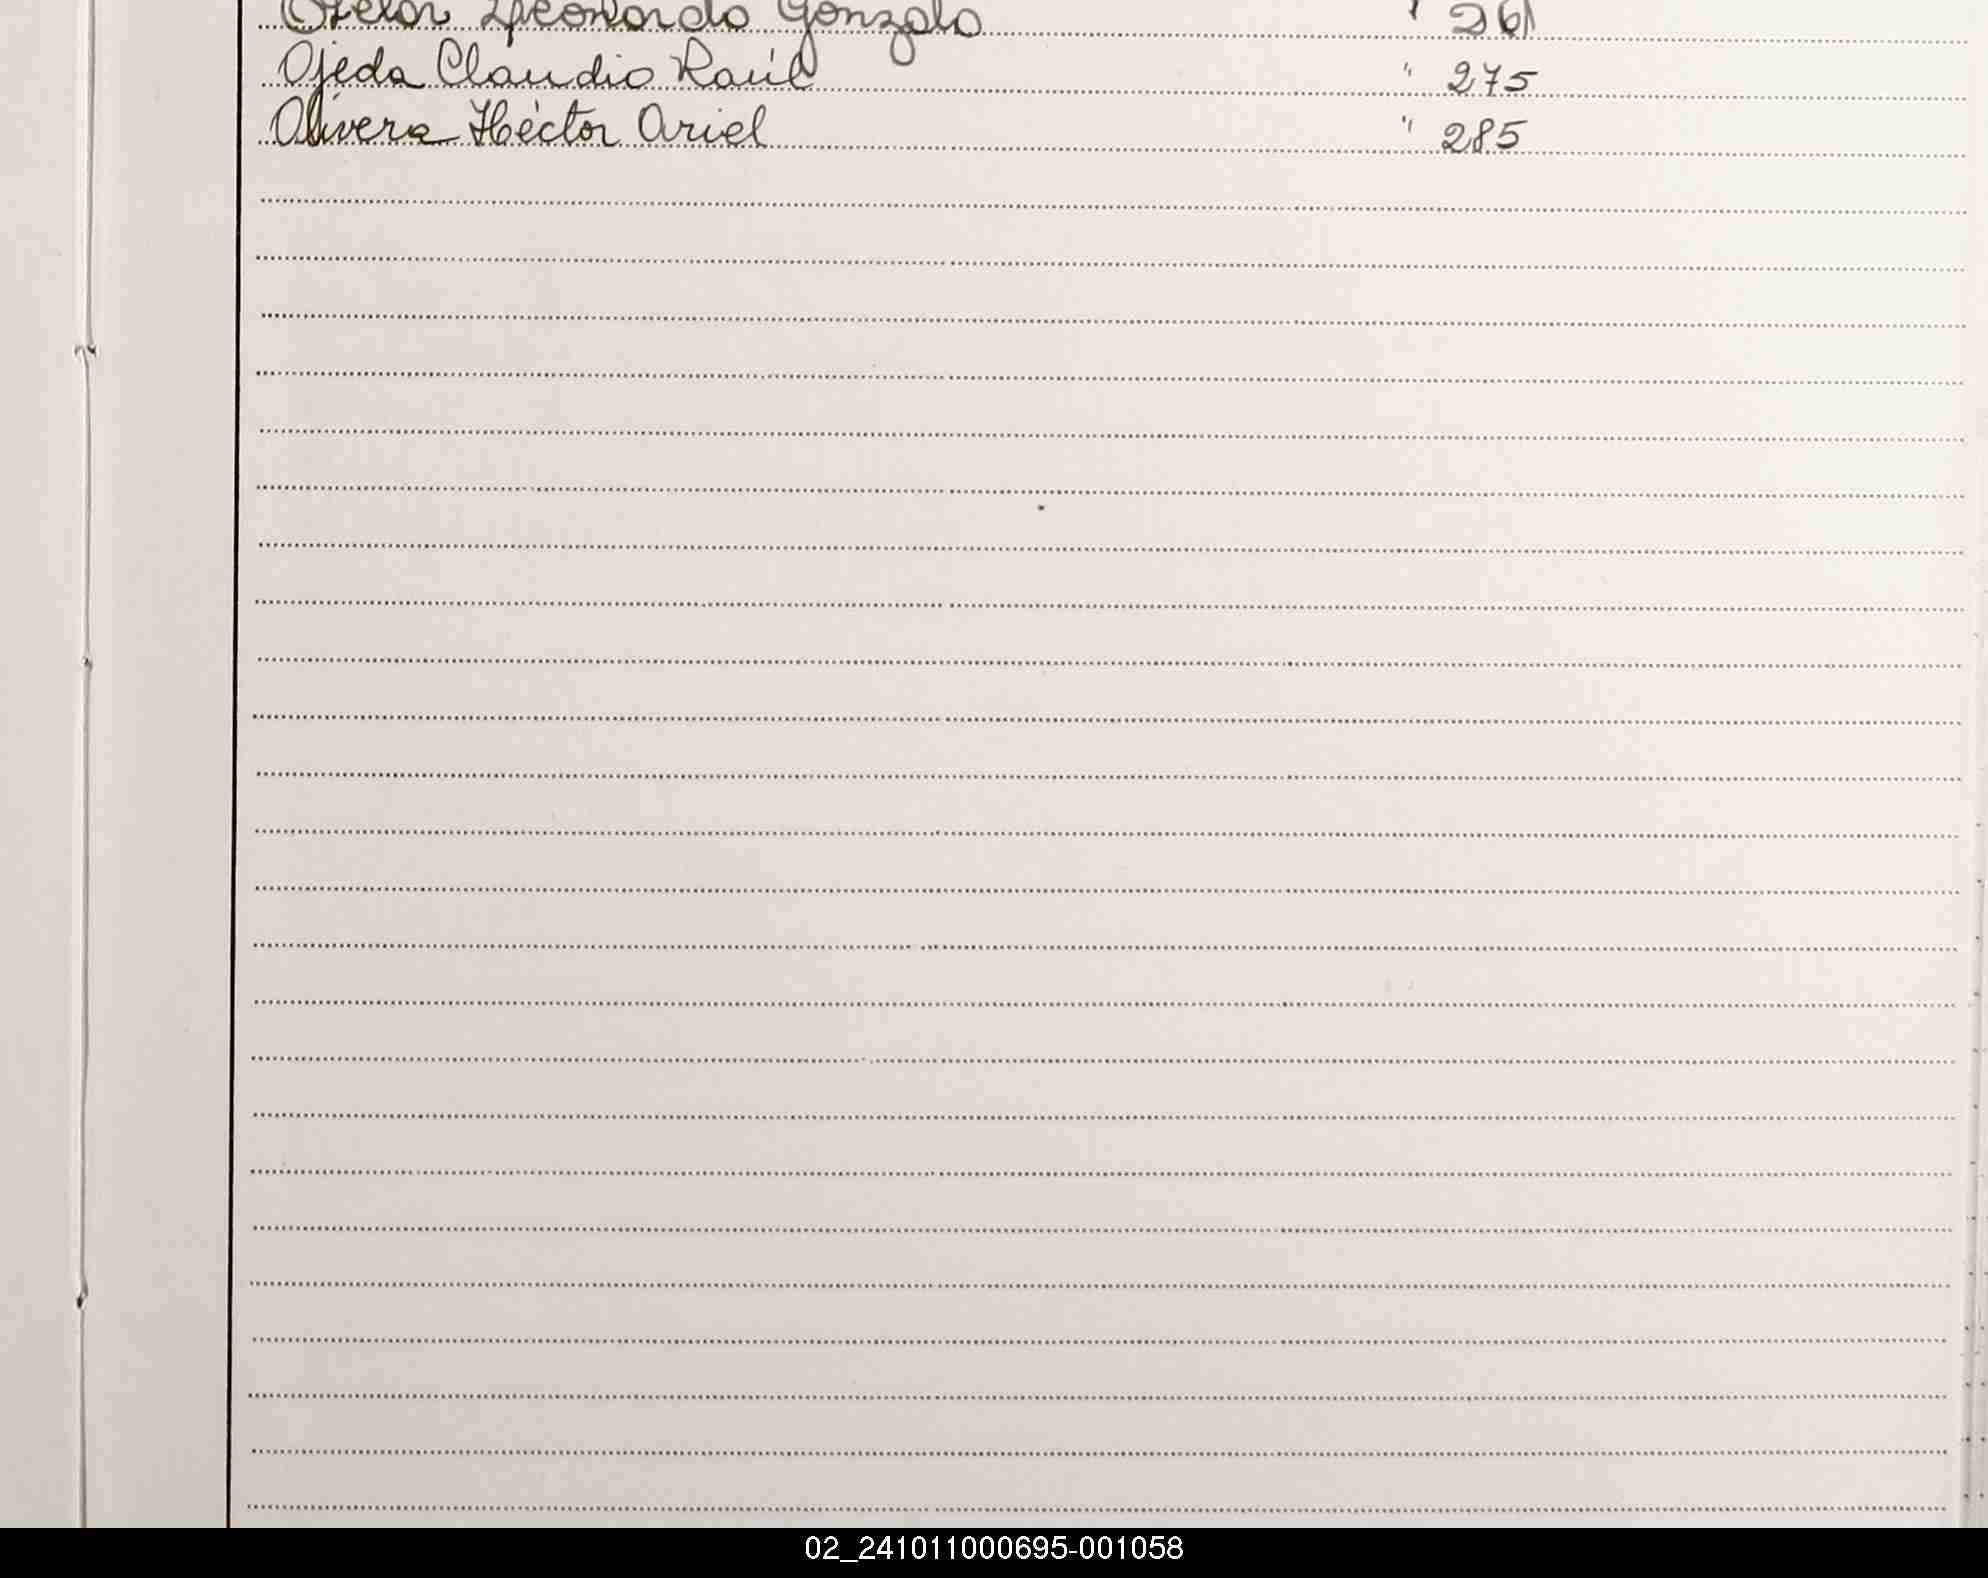 Leonardo Gonzalo " 261
Ojeda Claudio Raúl " 275
Olivera Héctor Ariel " 285
02_241011000695-001058